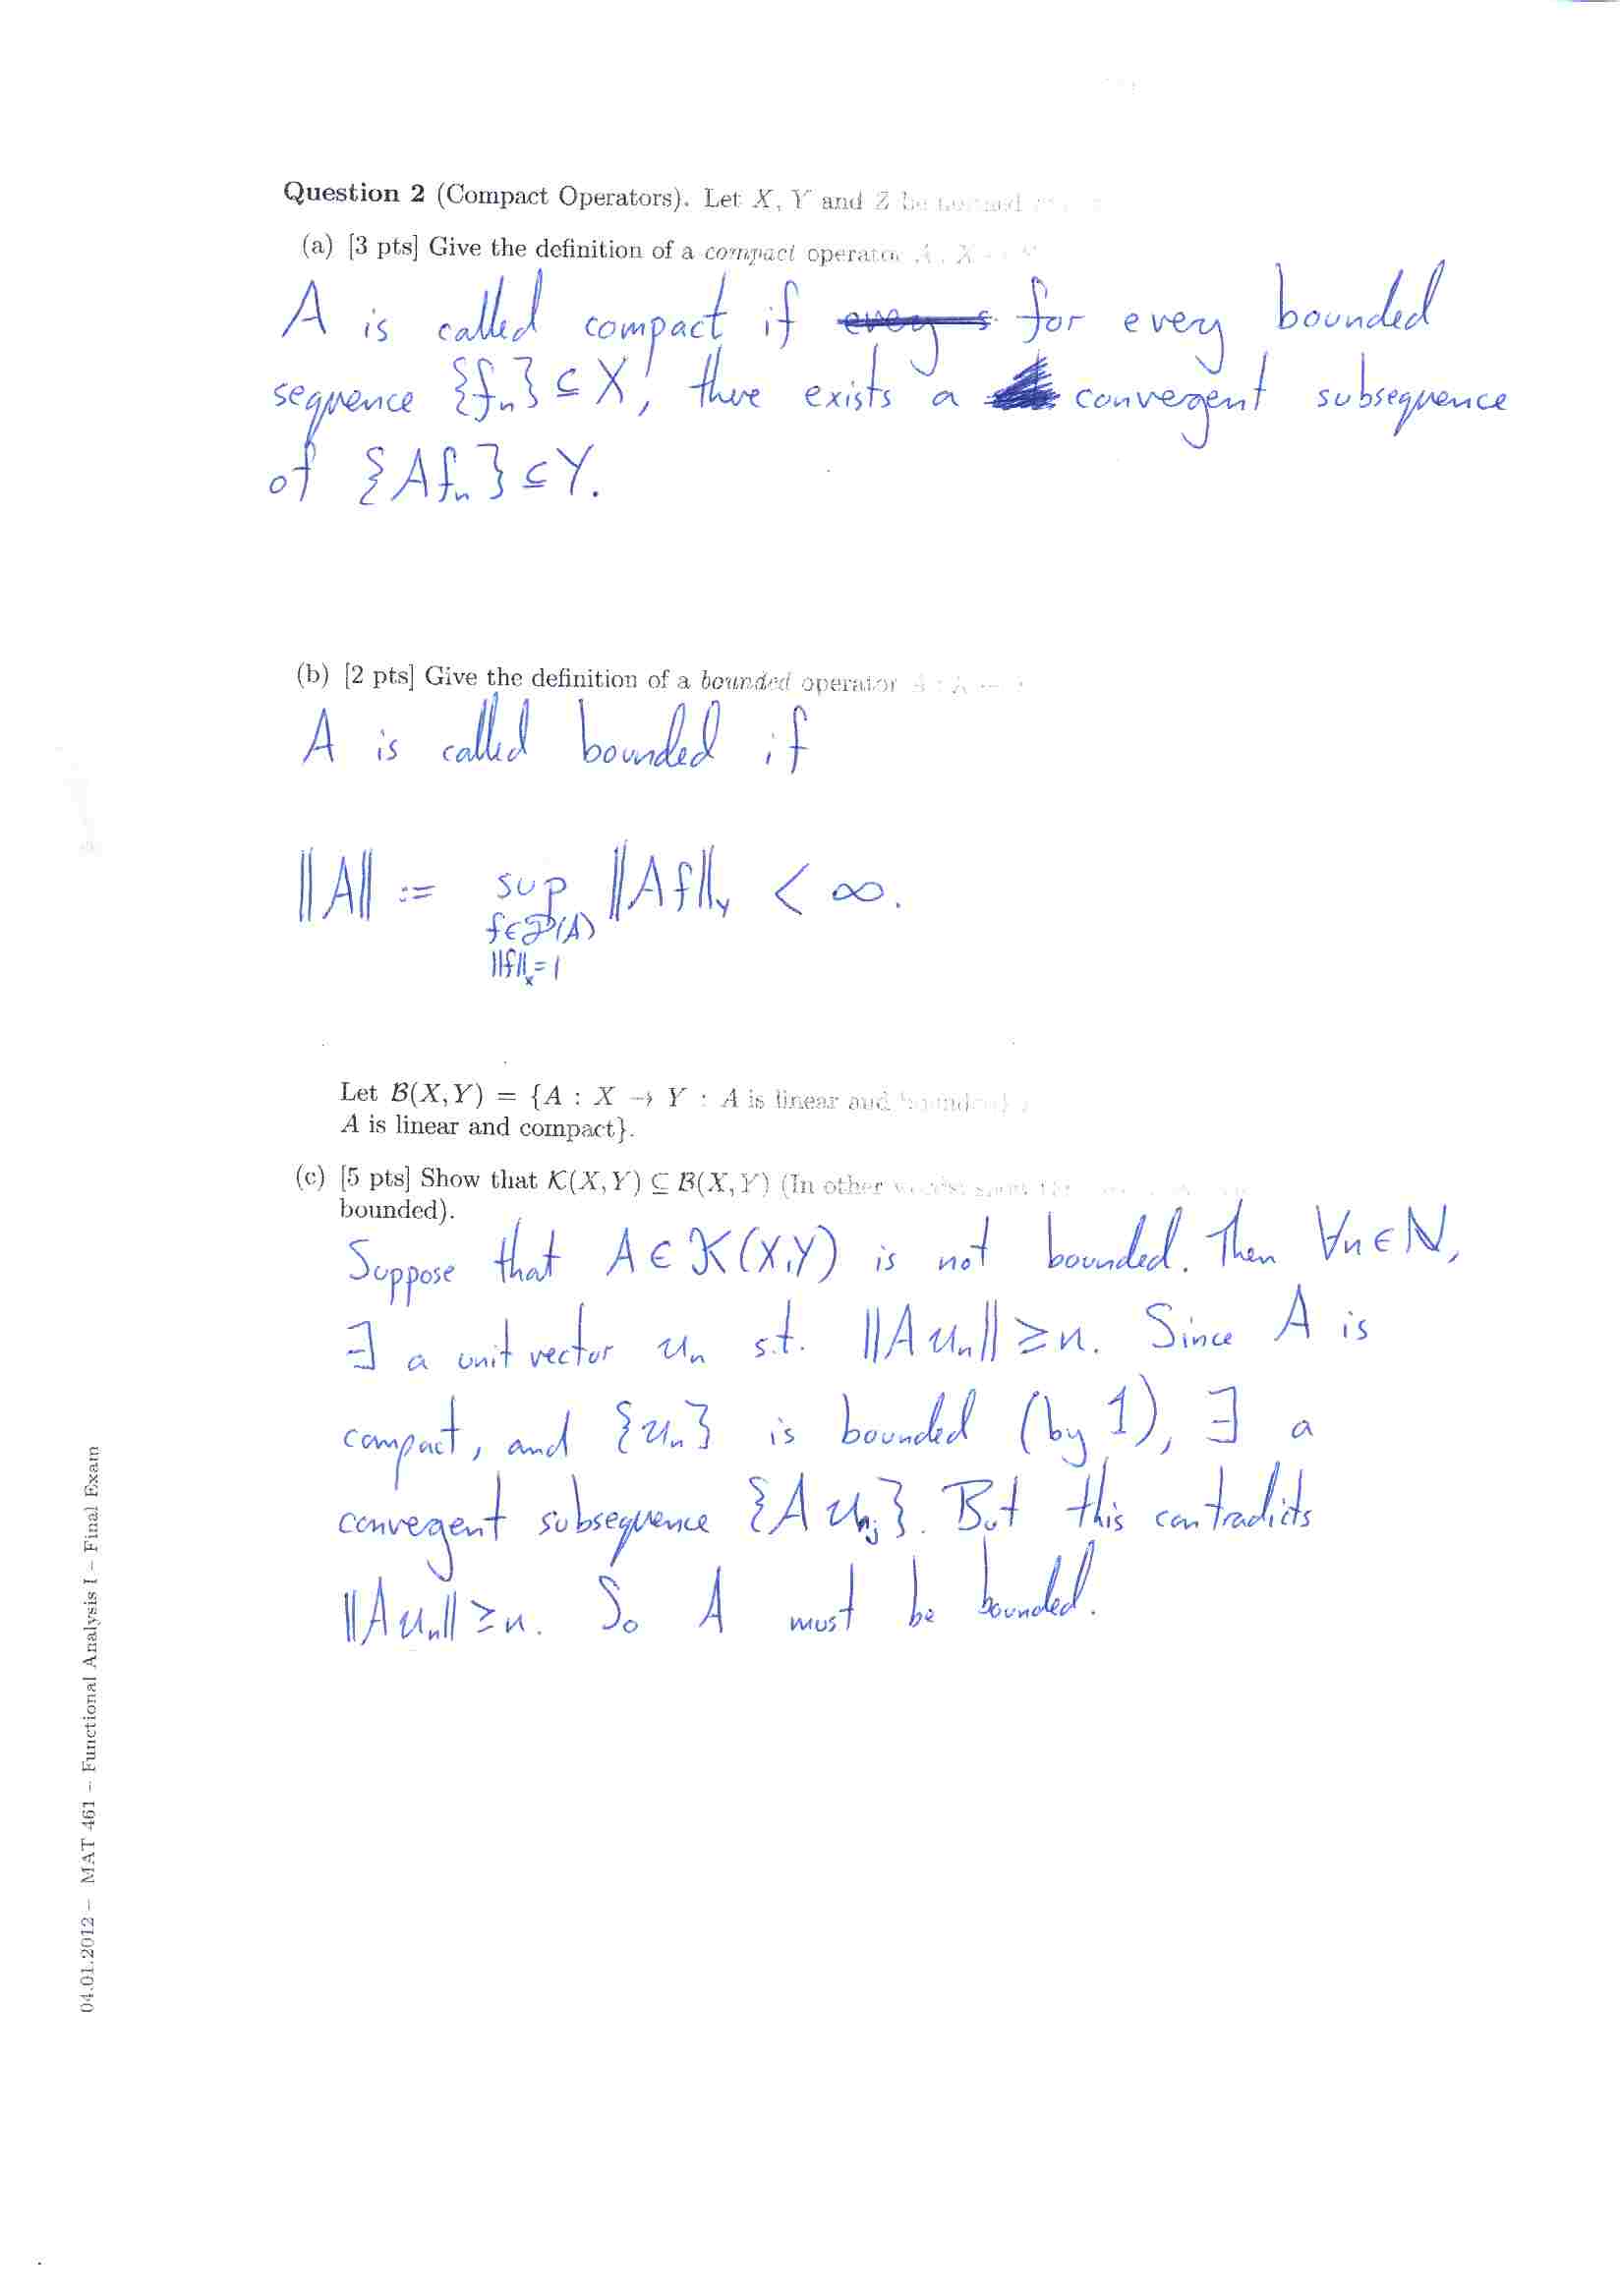 Question 2 (Compact Operators). Let X, Y and Z be normed
(a) [3 pts] Give the definition of a compact operator A : X
A is called compact if every s for every bounded
sequence {fₙ} ⊆ X, there exists a convergent subsequence
of {Afₙ} ⊆ Y.
(b) [2 pts] Give the definition of a bounded operator
A is called bounded if
‖A‖ := sup ‖Af‖_Y < ∞.
f∈𝒟(A)
‖f‖_X=1
Let ℬ(X, Y) = {A : X → Y : A is linear and bounded}
A is linear and compact}.
(c) [5 pts] Show that 𝒦(X, Y) ⊆ ℬ(X, Y) (In other words:
bounded).
Suppose that A ∈ 𝒦(X,Y) is not bounded. Then ∀n∈ℕ,
∃ a unit vector uₙ s.t. ‖Auₙ‖ ≥ n. Since A is
compact, and {uₙ} is bounded (by 1), ∃ a
convergent subsequence {Au_{n_j}}. But this contradicts
‖Auₙ‖ ≥ n. So A must be bounded.
04.01.2012 – MAT 461 – Functional Analysis I – Final Exam